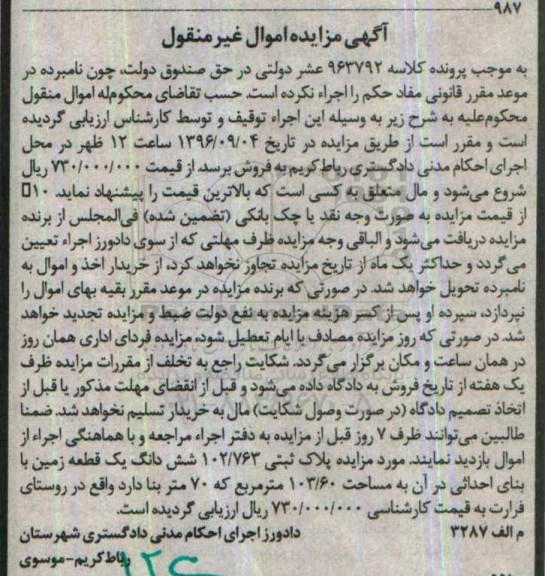 ۹۸۷
آگهی مزایده اموال غیر منقول
به موجب پرونده کلاسه ۹۶۳۷۹۲ عشر دولتی در حق صندوق دولت، چون نامبرده در
موعد مقرر قانونی مفاد حکم را اجراء نکرده است. حسب تقاضای محکوم‌له اموال منقول
محکوم‌علیه به شرح زیر به وسیله این اجراء توقیف و توسط کارشناس ارزیابی گردیده
است و مقرر است از طریق مزایده در تاریخ ۱۳۹۶/۰۹/۰۴ ساعت ۱۲ ظهر در محل
اجرای احکام مدنی دادگستری رباط کریم به فروش برسد. از قیمت ۷۳۰/۰۰۰/۰۰۰ ریال
شروع می‌شود و مال متعلق به کسی است که بالاترین قیمت را پیشنهاد نماید. ۱۰
از قیمت مزایده به صورت وجه نقد یا چک بانکی (تضمین شده) فی‌المجلس از برنده
مزایده دریافت می‌شود و الباقی وجه مزایده ظرف مهلتی که از سوی دادورز اجراء تعیین
می گردد و حداکثر یک ماه از تاریخ مزایده تجاوز نخواهد کرد، از خریدار اخذ و اموال به
نامبرده تحویل خواهد شد. در صورتی که برنده مزایده در موعد مقرر بقیه بهای اموال را
نپردازد، سپرده او پس از کسر هزینه مزایده به نفع دولت ضبط و مزایده تجدید خواهد
شد. در صورتی که روز مزایده مصادف با ایام تعطیل شود، مزایده فردای اداری همان روز
در همان ساعت و مکان برگزار می گردد. شکایت راجع به تخلف از مقررات مزایده ظرف
یک هفته از تاریخ فروش به دادگاه داده می‌شود و قبل از انقضای مهلت مذکور یا قبل از
اتخاذ تصمیم دادگاه (در صورت وصول شکایت) مال به خریدار تسلیم نخواهد شد. ضمنا
طالبین می‌توانند ظرف ۷ روز قبل از مزایده به دفتر اجراء مراجعه و با هماهنگی اجراء از
اموال بازدید نمایند. مورد مزایده پلاک ثبتی ۱۰۲/۷۶۳ شش دانگ یک قطعه زمین با
بنای احداثی در آن به مساحت ۱۰۳/۶۰ مترمربع که ۷۰ متر بنا دارد واقع در روستای
فرارت به قیمت کارشناسی ۷۳۰/۰۰۰/۰۰۰ ریال ارزیابی گردیده است.
م الف ۳۲۸۷ دادورز اجرای احکام مدنی دادگستری شهرستان
رباط کریم-موسوی